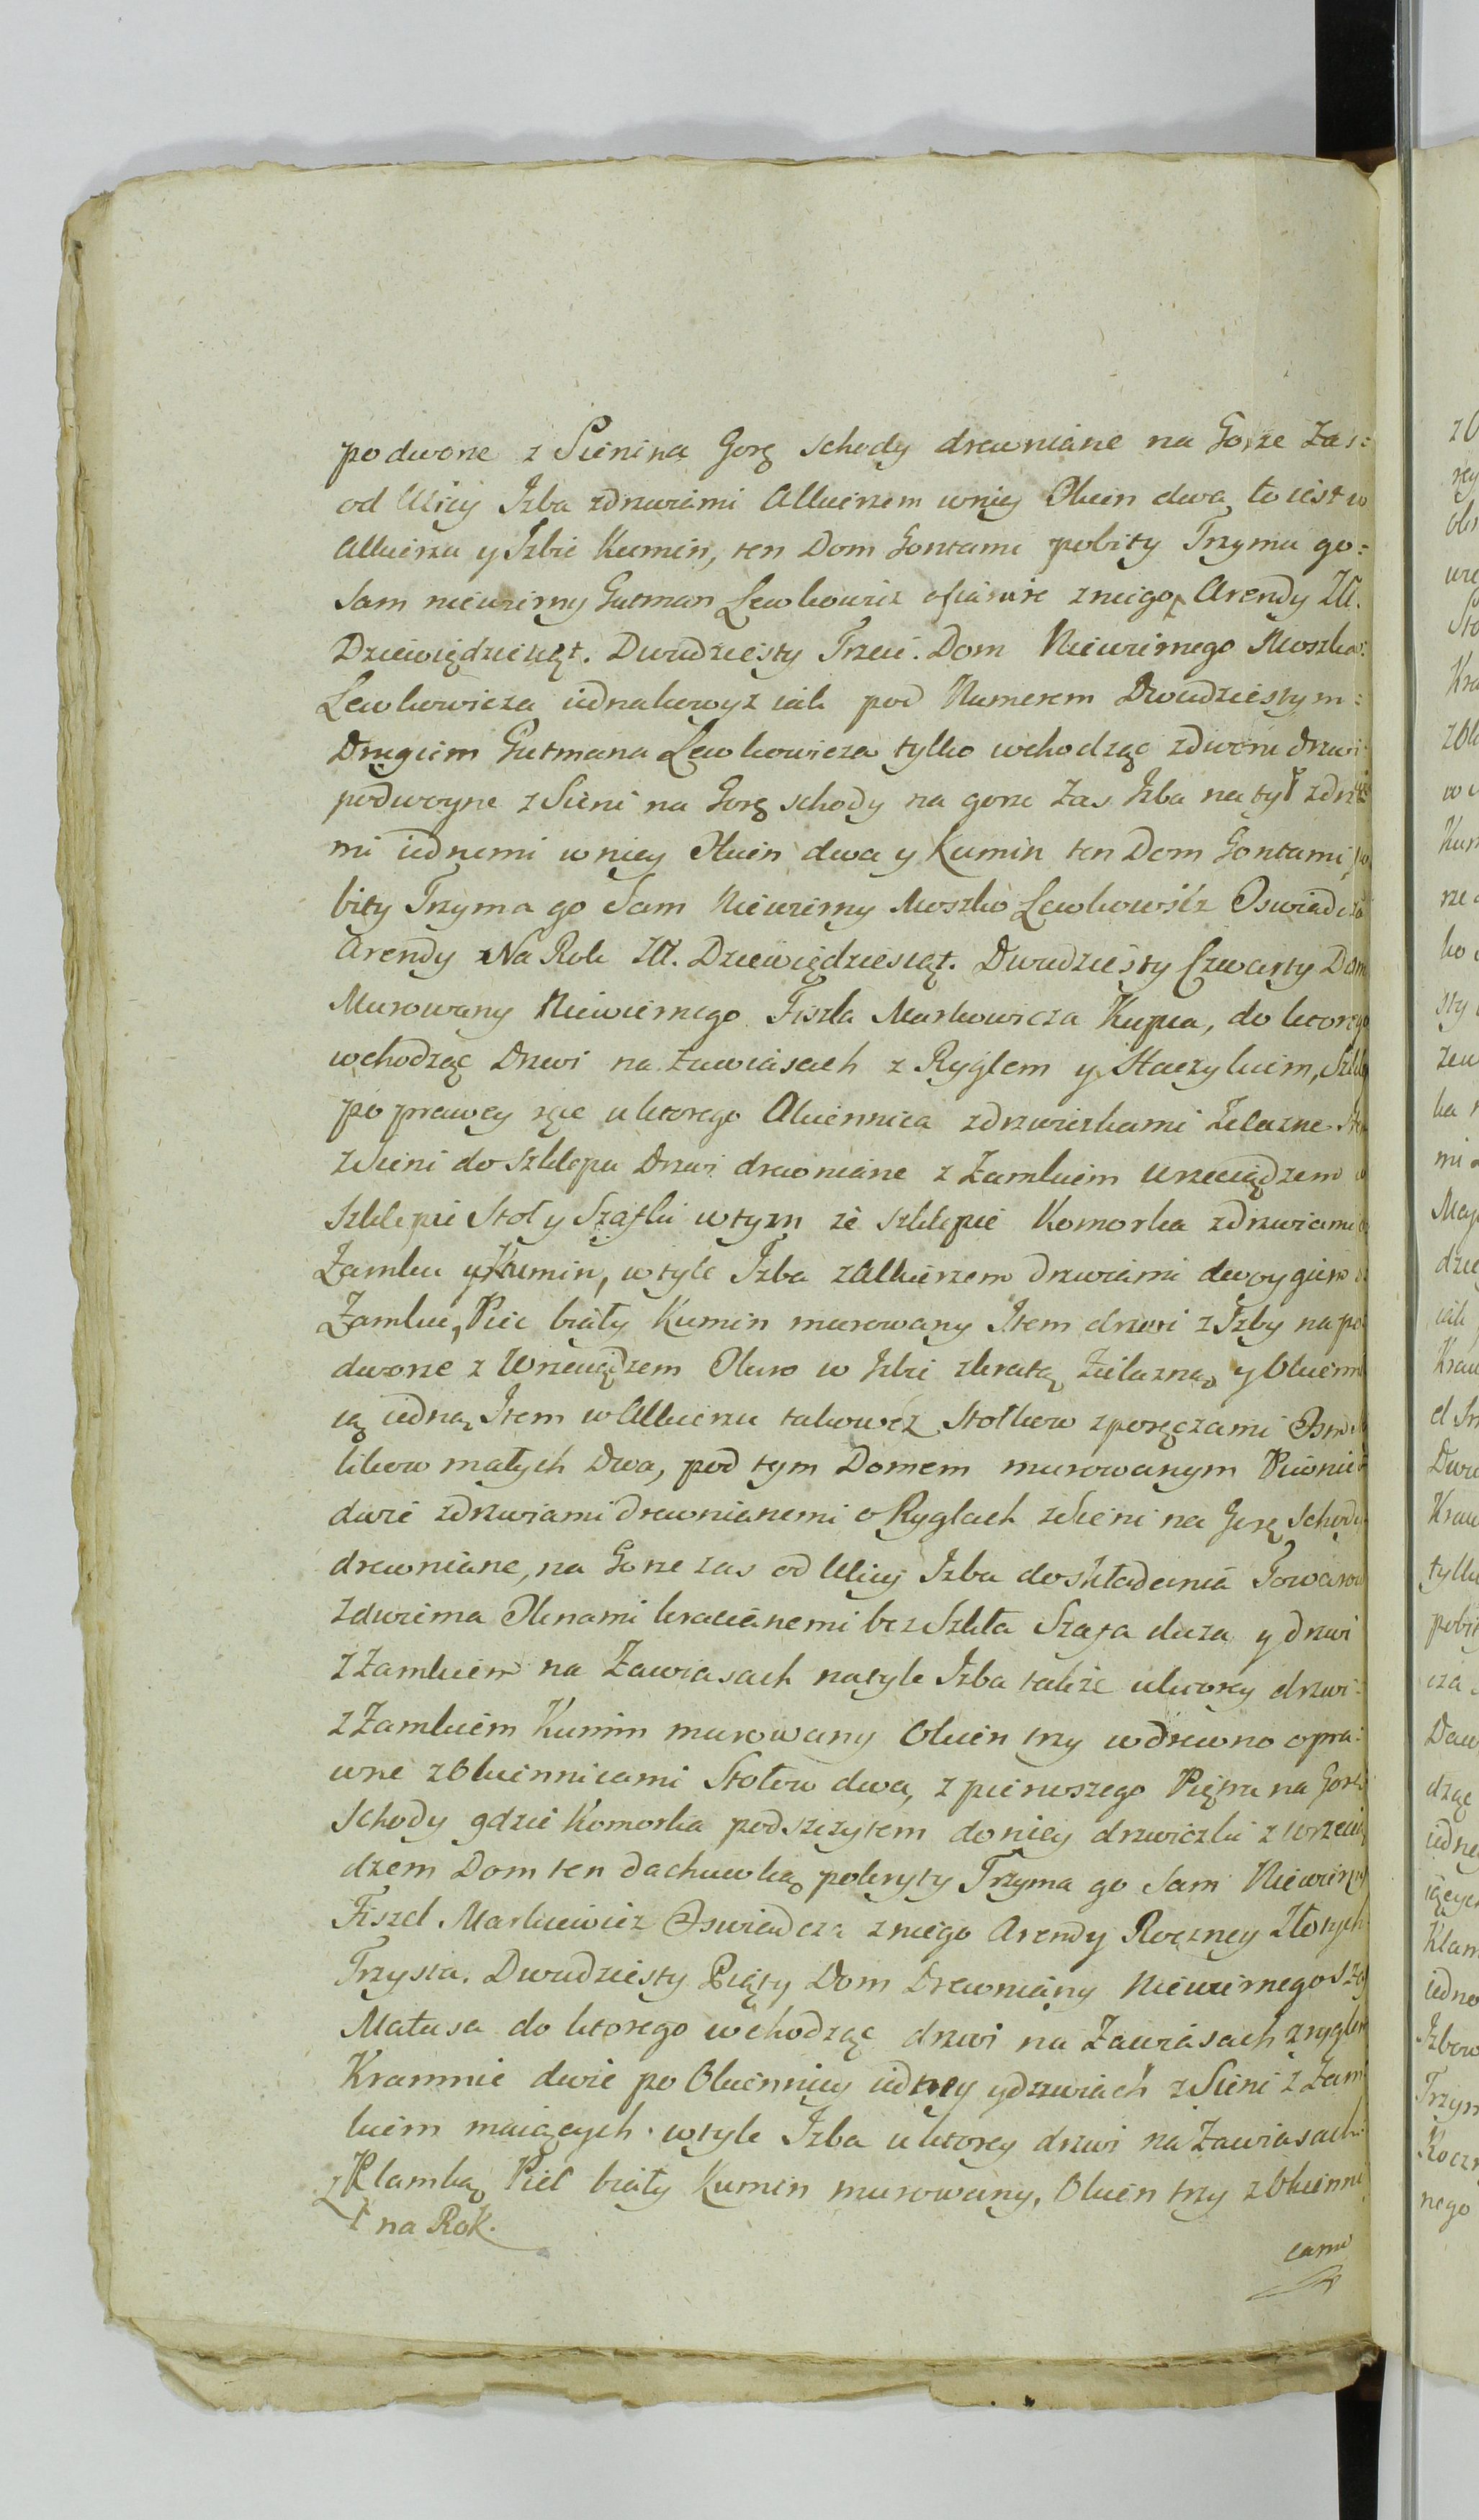 podworze z Sieni na Gorę schody drewniane na Gorze Zas:
od Ulicy Izba zdrzwiami Alkierzem wniey Okien dwa to iest w
Alkierzu y Izbie Kumin, ten Dom Gontami pobity Trzyma go:
Sam niewierny Gutman Lewkowicz ofiaruie zniego Arendy Zł.
Dziewiędziesiąt. Dwudziesty Trzeci. Dom Niewiernego Moszka:
Lewkowicza iednakowyz iak pod Numerem Dwudziestym:
Drugim Gutmana Lewkowicza tylko wchodząc zdworu drzwi
podwoyne z Sieni na Gorę schody na gorze Zas Izba na tył zdrzwi
mi iednemi wniey Okien dwa y Kumin ten Dom Gontami po
bity Trzyma go Sam Niewierny Moszko Lewkowicz Oswiadcza
Arendy Na Rok Zł. Dziewięдziesiąt. Dwudziesty Czwarty Dom
Murowany Niewiernego Fiszla Markowicza Kupca, do ktorego
wchodząc Drzwi na Zawiasach z Ryglem y Haczykiem, Sklep
po prawey ręce u ktorego Okiennica zdrzwiczkami Zelazne Item
z Sieni do Szklepu Drzwi drewniane z Zamkiem Wrzeciądzem w
Szklepie Stoł y Szafki w tym ze szklepie Komorka zdrzwiami o
Zamku y Kumin, w tyle Izba z Alkierzem drzwiami dwoygiem o
Zamku, Piec biały Kumin murowany Item drzwi z Izby na po
dworze z Wrzeciądzem Okno w Izbie zkratą Zielazną y Okienni
cą iedną Item w Alkierzu takowez Stołkow z poręczami Osm
likow małych Dwa, pod tym Domem murowanym Piwnice
dwie zdrzwiami drewnianemi o Ryglach z Sieni na Gorę Schody
drewniane, na Gorze zas od Ulicy Izba do składania Towarow
z dwiema Oknami kracianemi bez Szkła Szafa duza y drzwi
z Zamkiem na Zawiasach na tyle Izba takze u ktorey drzwi:
z Zamkiem Kumin murowany Okien trzy w drewno opra:
wne z Okiennicami Stołow dwa, z pierwszego Piętra na Gorę
Schody gdzie Komorka pod szczytem do niey drzwiczki z wrzecią
dzem Dom ten dachuwką pokryty Trzyma go Sam Niewierny
Fiszel Markiewicz Oswiadcza zniego Arendy Roczney Złotych
Trzysta. Dwudziesty Piąty Dom Drewniany Niewiernego
Matusa do ktorego wchodząc drzwi na Zawiasach z ryglem
Kramnie dwie po Okiennicy iedney y drzwiach z Sieni z Zam
kiem maiących. w tyle Izba u ktorey drzwi na Zawiasach
z Klamką Piec biały Kumin murowany, Okien trzy z Okienni
na Rok.
cami